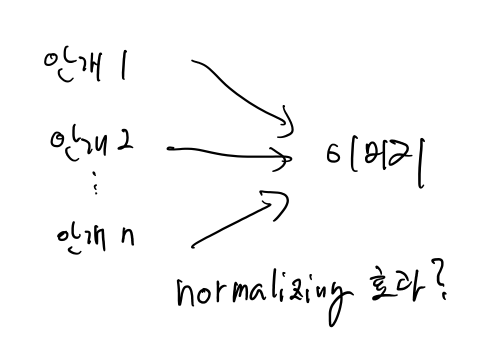 안개 1
안개 2
⋮
안개 n
normalizing 효과?